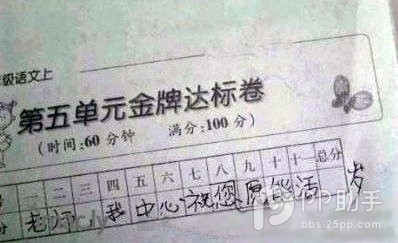 级语文上
第五单元金牌达标卷
(时间:60分钟 满分:100分)
一 二 三 四 五 六 七 八 九 十 十一 总分
老师,我中心祝您愿能活 岁
PP助手
bbs.25pp.com